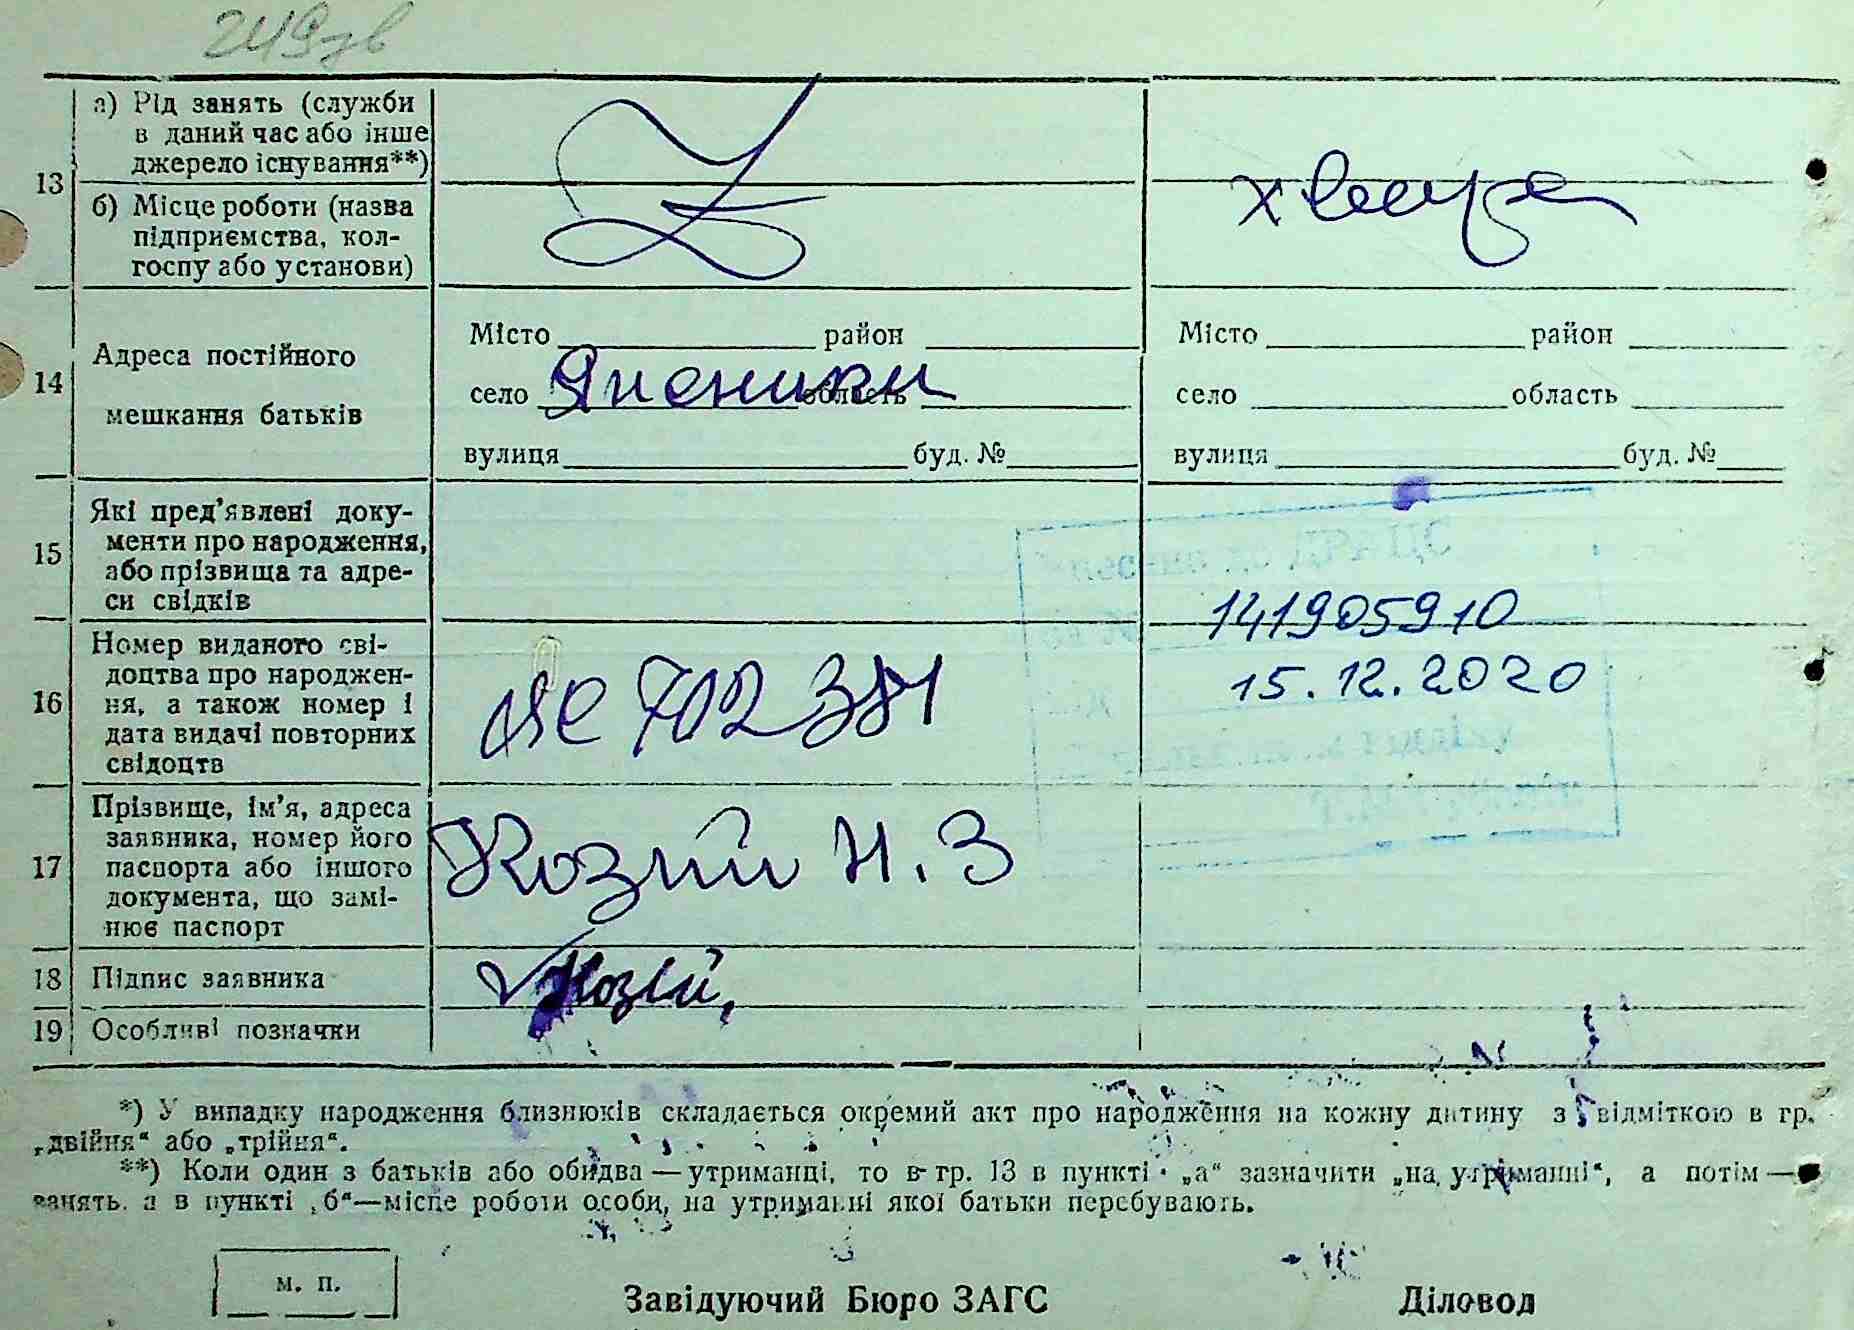 249зв
13
а) Рід занять (служби
в даний час або інше
джерело існування**)
б) Місце роботи (назва
підприємства, кол-
госпу або установи)
14
Адреса постійного
мешкання батьків
Місто район
село область
вулиця буд. №
Місто район
село область
вулиця буд. №
15
Які пред’явлені доку-
менти про народження,
або прізвища та адре-
си свідків
141905910
15.12.2020
16
Номер виданого сві-
доцтва про народжен-
ня, а також номер і
дата видачі повторних
свідоцтв
702381
17
Прізвище, ім’я, адреса
заявника, номер його
паспорта або іншого
документа, що замі-
нює паспорт
Козій Н. З
18
Підпис заявника
Козій,
19
Особливі позначки
*) У випадку народження близнюків складається окремий акт про народження на кожну дитину з відміткою в гр.
„двійня“ або „трійня“.
**) Коли один з батьків або обидва — утриманці, то в гр. 13 в пункті „а“ зазначити „на утриманні“, а потім —
занять, а в пункті „б“—місце роботи особи, на утриманні якої батьки перебувають.
м. п.
Завідуючий Бюро ЗАГС
Діловод